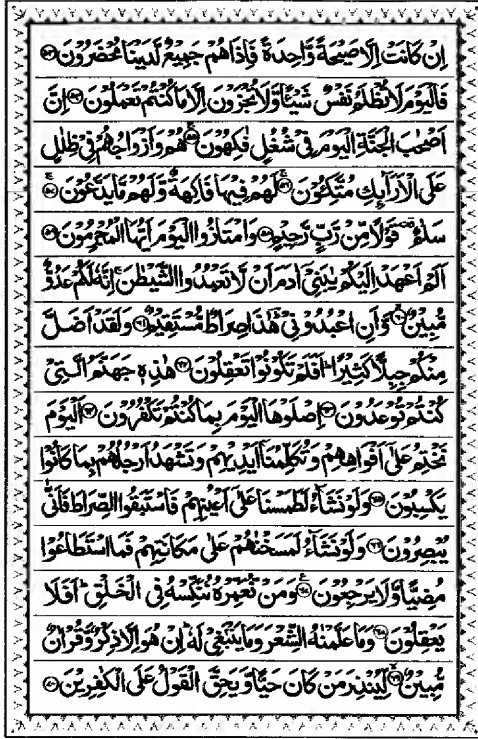 اِنْ كَانَتْ اِلَّا صَيْحَةً وَّاحِدَةً فَاِذَا هُمْ جَمِيْعٌ لَّدَيْنَا مُحْضَرُوْنَ ﴿۵۳﴾
فَالْيَوْمَ لَا تُظْلَمُ نَفْسٌ شَيْـًٔا وَّلَا تُجْزَوْنَ اِلَّا مَا كُنْتُمْ تَعْمَلُوْنَ ﴿۵۴﴾ اِنَّ
اَصْحٰبَ الْجَنَّةِ الْيَوْمَ فِيْ شُغُلٍ فٰكِهُوْنَ ﴿۵۵﴾ هُمْ وَاَزْوَاجُهُمْ فِيْ ظِلٰلٍ
عَلَى الْاَرَآىِٕكِ مُتَّكِـُٔوْنَ ﴿۵۶﴾ لَهُمْ فِيْهَا فَاكِهَةٌ وَّلَهُمْ مَّا يَدَّعُوْنَ ﴿۵۷﴾
سَلٰمٌ قَوْلًا مِّنْ رَّبٍّ رَّحِيْمٍ ﴿۵۸﴾ وَامْتَازُوا الْيَوْمَ اَيُّهَا الْمُجْرِمُوْنَ ﴿۵۹﴾
اَلَمْ اَعْهَدْ اِلَيْكُمْ يٰبَنِيْٓ اٰدَمَ اَنْ لَّا تَعْبُدُوا الشَّيْطٰنَ ۚ اِنَّهٗ لَكُمْ عَدُوٌّ
مُّبِيْنٌ ﴿۶۰﴾ وَّاَنِ اعْبُدُوْنِيْ ؕ هٰذَا صِرَاطٌ مُّسْتَقِيْمٌ ﴿۶۱﴾ وَلَقَدْ اَضَلَّ
مِنْكُمْ جِبِلًّا كَثِيْرًا ؕ اَفَلَمْ تَكُوْنُوْا تَعْقِلُوْنَ ﴿۶۲﴾ هٰذِهٖ جَهَنَّمُ الَّتِيْ
كُنْتُمْ تُوْعَدُوْنَ ﴿۶۳﴾ اِصْلَوْهَا الْيَوْمَ بِمَا كُنْتُمْ تَكْفُرُوْنَ ﴿۶۴﴾ اَلْيَوْمَ
نَخْتِمُ عَلٰٓى اَفْوَاهِهِمْ وَتُكَلِّمُنَآ اَيْدِيْهِمْ وَتَشْهَدُ اَرْجُلُهُمْ بِمَا كَانُوْا
يَكْسِبُوْنَ ﴿۶۵﴾ وَلَوْ نَشَآءُ لَطَمَسْنَا عَلٰٓى اَعْيُنِهِمْ فَاسْتَبَقُوا الصِّرَاطَ فَاَنّٰى
يُبْصِرُوْنَ ﴿۶۶﴾ وَلَوْ نَشَآءُ لَمَسَخْنٰهُمْ عَلٰى مَكَانَتِهِمْ فَمَا اسْتَطَاعُوْا
مُضِيًّا وَّلَا يَرْجِعُوْنَ ﴿۶۷﴾ وَمَنْ نُّعَمِّرْهُ نُنَكِّسْهُ فِي الْخَلْقِ ؕ اَفَلَا
يَعْقِلُوْنَ ﴿۶۸﴾ وَمَا عَلَّمْنٰهُ الشِّعْرَ وَمَا يَنْۢبَغِيْ لَهٗ ؕ اِنْ هُوَ اِلَّا ذِكْرٌ وَّقُرْاٰنٌ
مُّبِيْنٌ ﴿۶۹﴾ لِّيُنْذِرَ مَنْ كَانَ حَيًّا وَّيَحِقَّ الْقَوْلُ عَلَى الْكٰفِرِيْنَ ﴿۷۰﴾